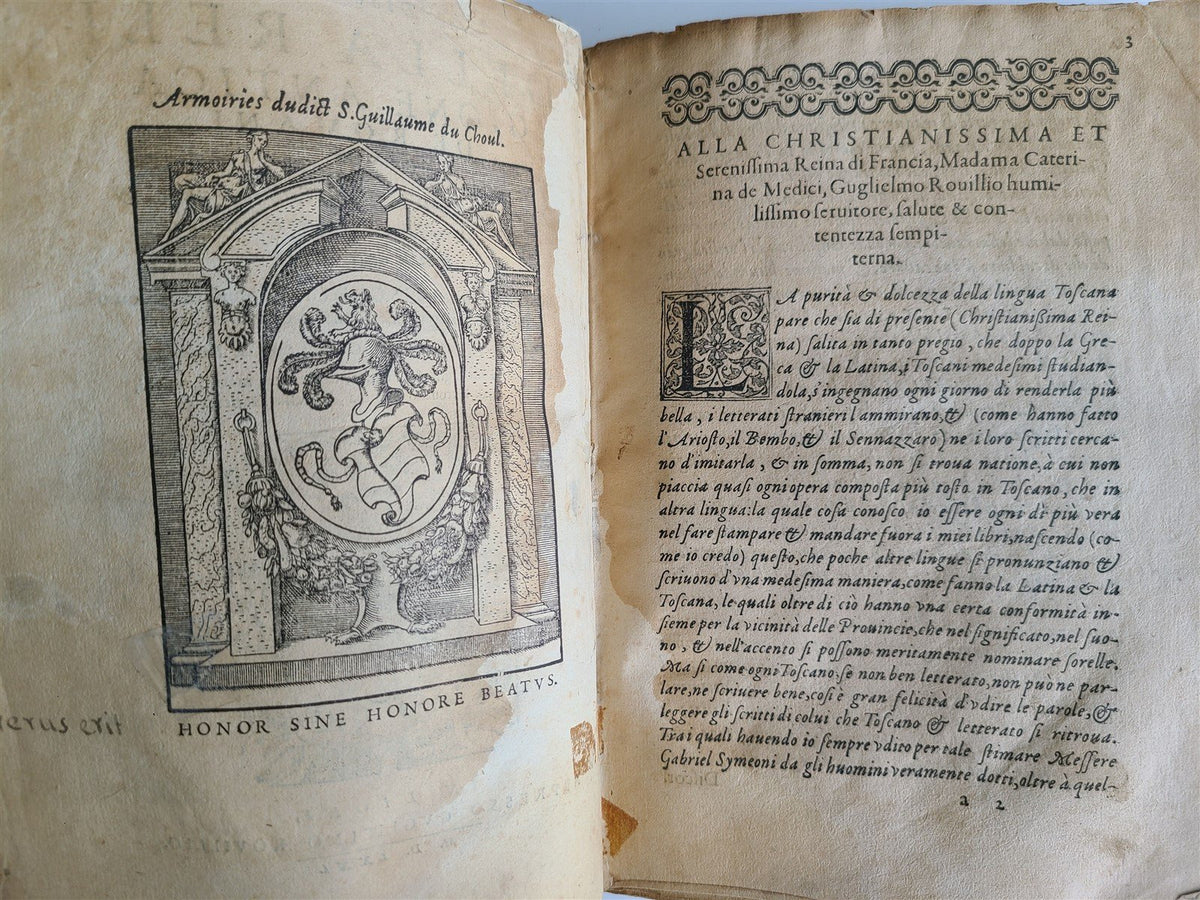 Armoiries dudict S. Guillaume du Choul.
HONOR SINE HONORE BEATVS.
erus erit
3
ALLA CHRISTIANISSIMA ET
Sereniſſima Reina di Francia, Madama Cateri-
na de Medici, Guglielmo Rouillio humi-
liſſimo ſeruitore, ſalute & con-
tentezza ſempi-
terna.
LA purità & dolcezza della lingua Toſcana
pare che ſia di preſente (Chriſtianißima Rei-
na) ſalita in tanto pregio, che doppo la Gre-
ca & la Latina, i Toſcani medeſimi ſtudian-
dola, s'ingegnano ogni giorno di renderla più
bella, i letterati ſtranieri l ammirano, & (come hanno fatto
l'Arioſto, il Bembo, & il Sennazzaro) ne i loro ſcritti cerca-
no d'imitarla, & in ſomma, non ſi troua natione, à cui non
piaccia quaſi ogni opera compoſta più toſto in Toſcano, che in
altra lingua: la quale coſa conoſco io eſſere ogni dì più vera
nel fare ſtampare & mandare fuora i miei libri, naſcendo (co-
me io credo) queſto, che poche altre lingue ſi pronunziano &
ſcriuono d'vna medeſima maniera, come fanno la Latina & la
Toſcana, le quali oltre di ciò hanno vna certa conformità in-
ſieme per la vicinità delle Prouincie, che nel ſignificato, nel ſuo-
no, & nell'accento ſi poſſono meritamente nominare ſorelle.
Ma ſi come ogni Toſcano, ſe non ben letterato, non puo ne par-
lare, ne ſcriuere bene, coſi è gran felicità d'vdire le parole, &
leggere gli ſcritti di colui che Toſcano & letterato ſi ritroua.
Tra i quali hauendo io ſempre vdito per tale ſtimare Meſſere
Gabriel Symeoni da gli huomini veramente dotti, oltre à quel-
a 2